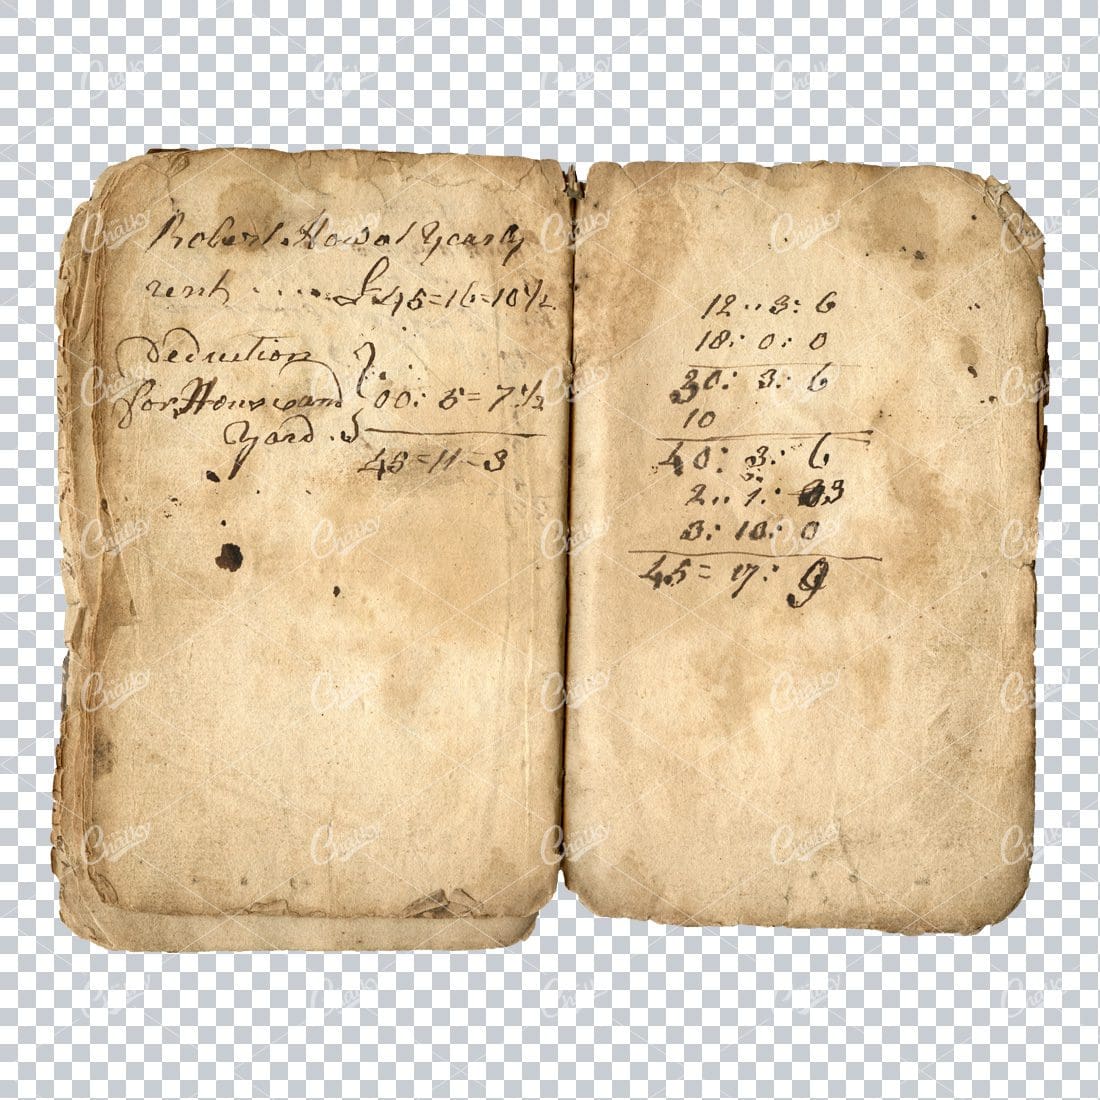 Robert Howat Yearly
rent .... £45=16=10½
Deduction
for House and 00: 5=7½
Yard.
45=11=3
12..3:6
18:0:0
30:3:6
10
40:3:6
2..1:3
3:10:0
45=17:9
Chalky